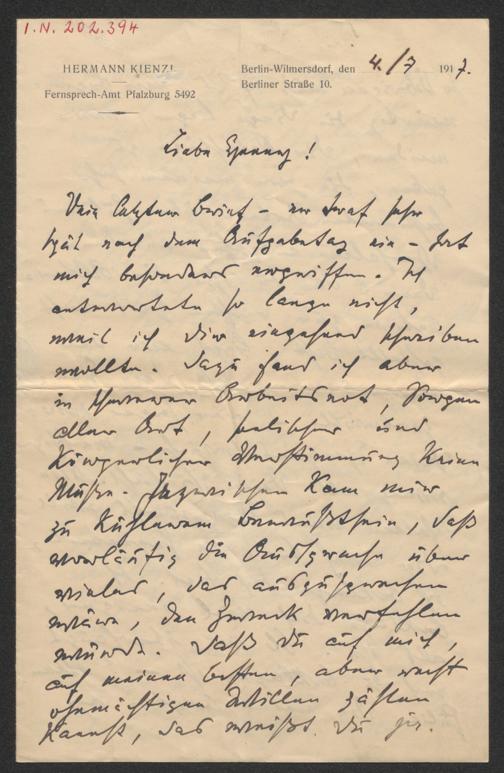 I.N. 202.394
HERMANN KIENZL
Fernsprech-Amt Pfalzburg 5492
Berlin-Wilmersdorf, den 4./7 1917.
Berliner Straße 10.
Liebe !
Dein letzter Brief – er traf sehr
spät nach dem Aufgabetag ein – hat
mich besonders ergriffen. Ich
antwortete so lange nicht,
weil ich Dir eingehend schreiben
wollte. Dazu fand ich aber
in schwerer Arbeitsnot, Sorgen
aller Art, seelischer und
körperlicher Verstimmung keine
Muße. Inzwischen kam mir
zu klarem Bewußtsein, daß
vorläufig die Aussprache über
vieles, das auszusprechen
wäre, den Zweck verfehlen
würde. Daß Du auf mich,
auf meinen besten, aber recht
ohnmächtigen Willen zählen
kannst, das weißt Du ja.